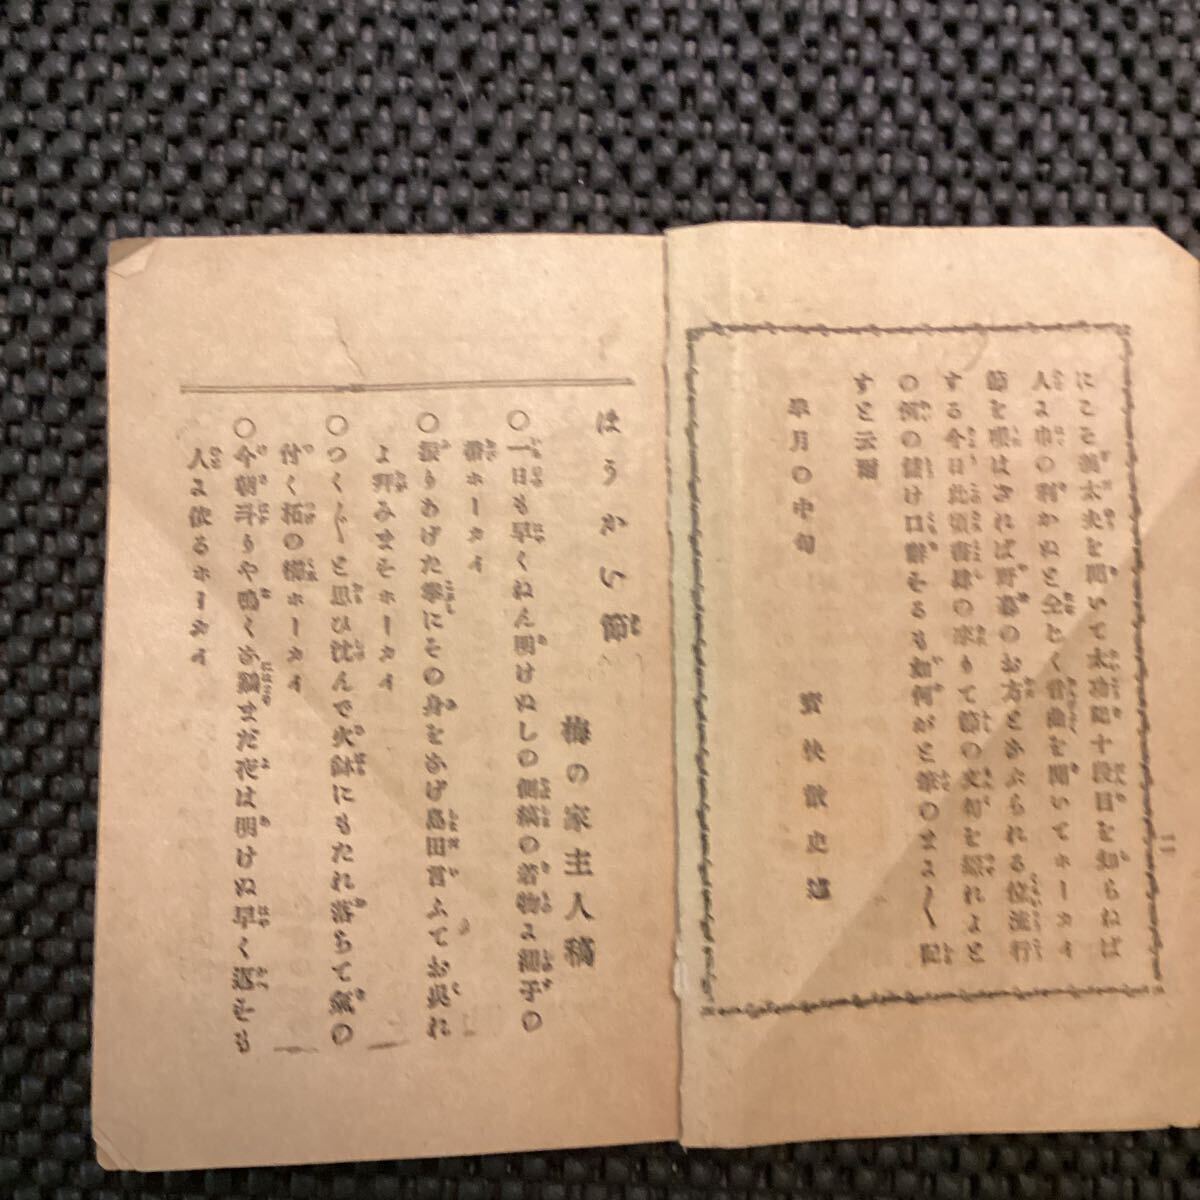 二
にこそ義太夫を聞いて太功記十段目を知らねば
人よ巾の利かぬと仝とく音曲を聞いてホーカイ
節を唄はざれば野暮のお方と云ふられる位流行
する今日此頃書肆の來りて節の文句を綴れよと
の例の儲け口辭そるも如何がと筆のまよ〱記
すと云爾
皐月の中旬
寳快散史述
はうかい節
梅の家主人稿
〇一日も早くねん明けぬしの側縞の着物よ繻子の
帶ホーカイ
〇振りあげた拳にその身をあげ島田言ふてお呉れ
よ拜みまそホーカイ
〇つく〲と思ひ沈んで火鉢にもたれ落ちて氣の
付く柘の櫛ホーカイ
〇今朝斗りや鳴くな鷄まだ夜は明けぬ早く返そも
人よ依るホーカイ